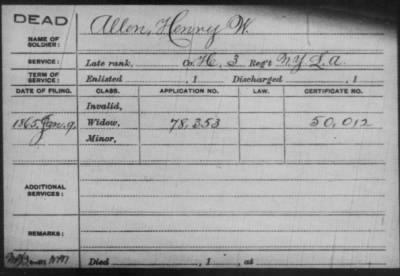 DEAD
Allen, Henry W.
NAME OF SOLDIER:
SERVICE: Late rank, Co. H, 3 Reg't NY L.A.
TERM OF SERVICE: Enlisted , 1 Discharged , 1
DATE OF FILING. CLASS. APPLICATION NO. LAW. CERTIFICATE NO.
Invalid,
1865, Jan. 9, Widow, 78,353 50,012
Minor,
ADDITIONAL SERVICES:
REMARKS:
Died , 1 , at